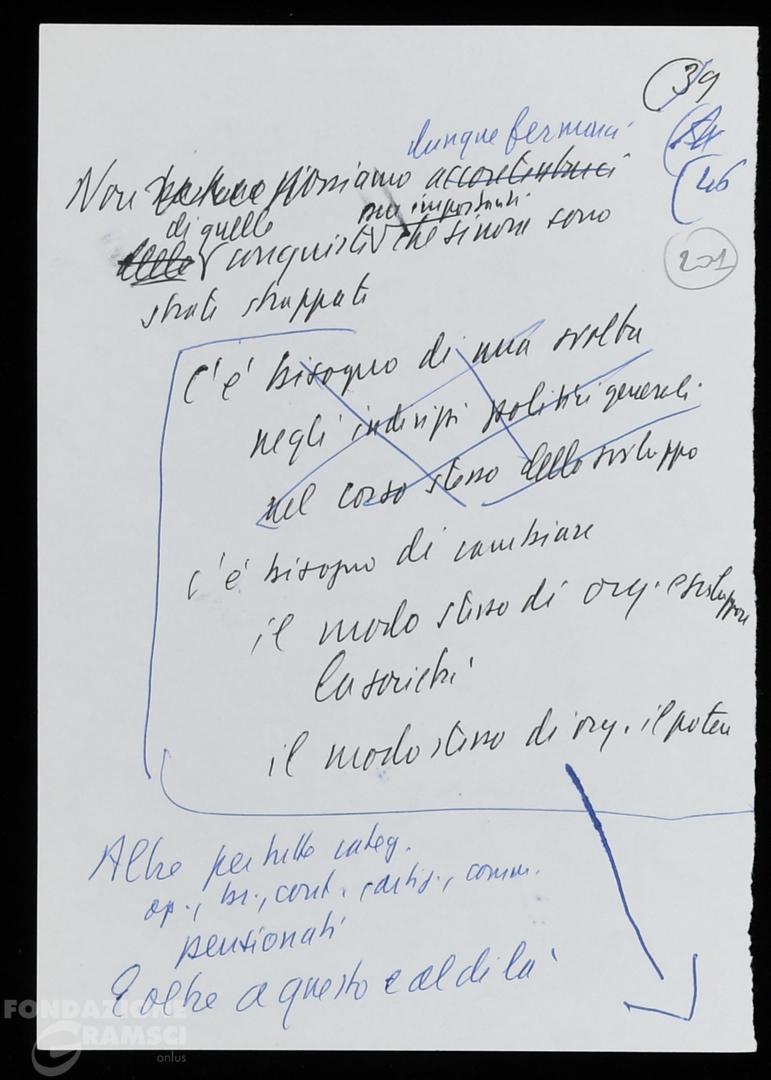 39
46
201
dunque fermarci
Non possiamo accontentarci
di quelle pur importanti
delle conquiste che sinora sono
state strappate
C'è bisogno di una svolta
negli indirizzi politici generali
nel corso stesso dello sviluppo
c'è bisogno di cambiare
il modo stesso di org. e sviluppare
la società
il modo stesso di org. il potere
Altre per tutte categ.
op., br., cont., artig., comm.
pensionati
E oltre a questo e al di là
FONDAZIONE
GRAMSCI
onlus